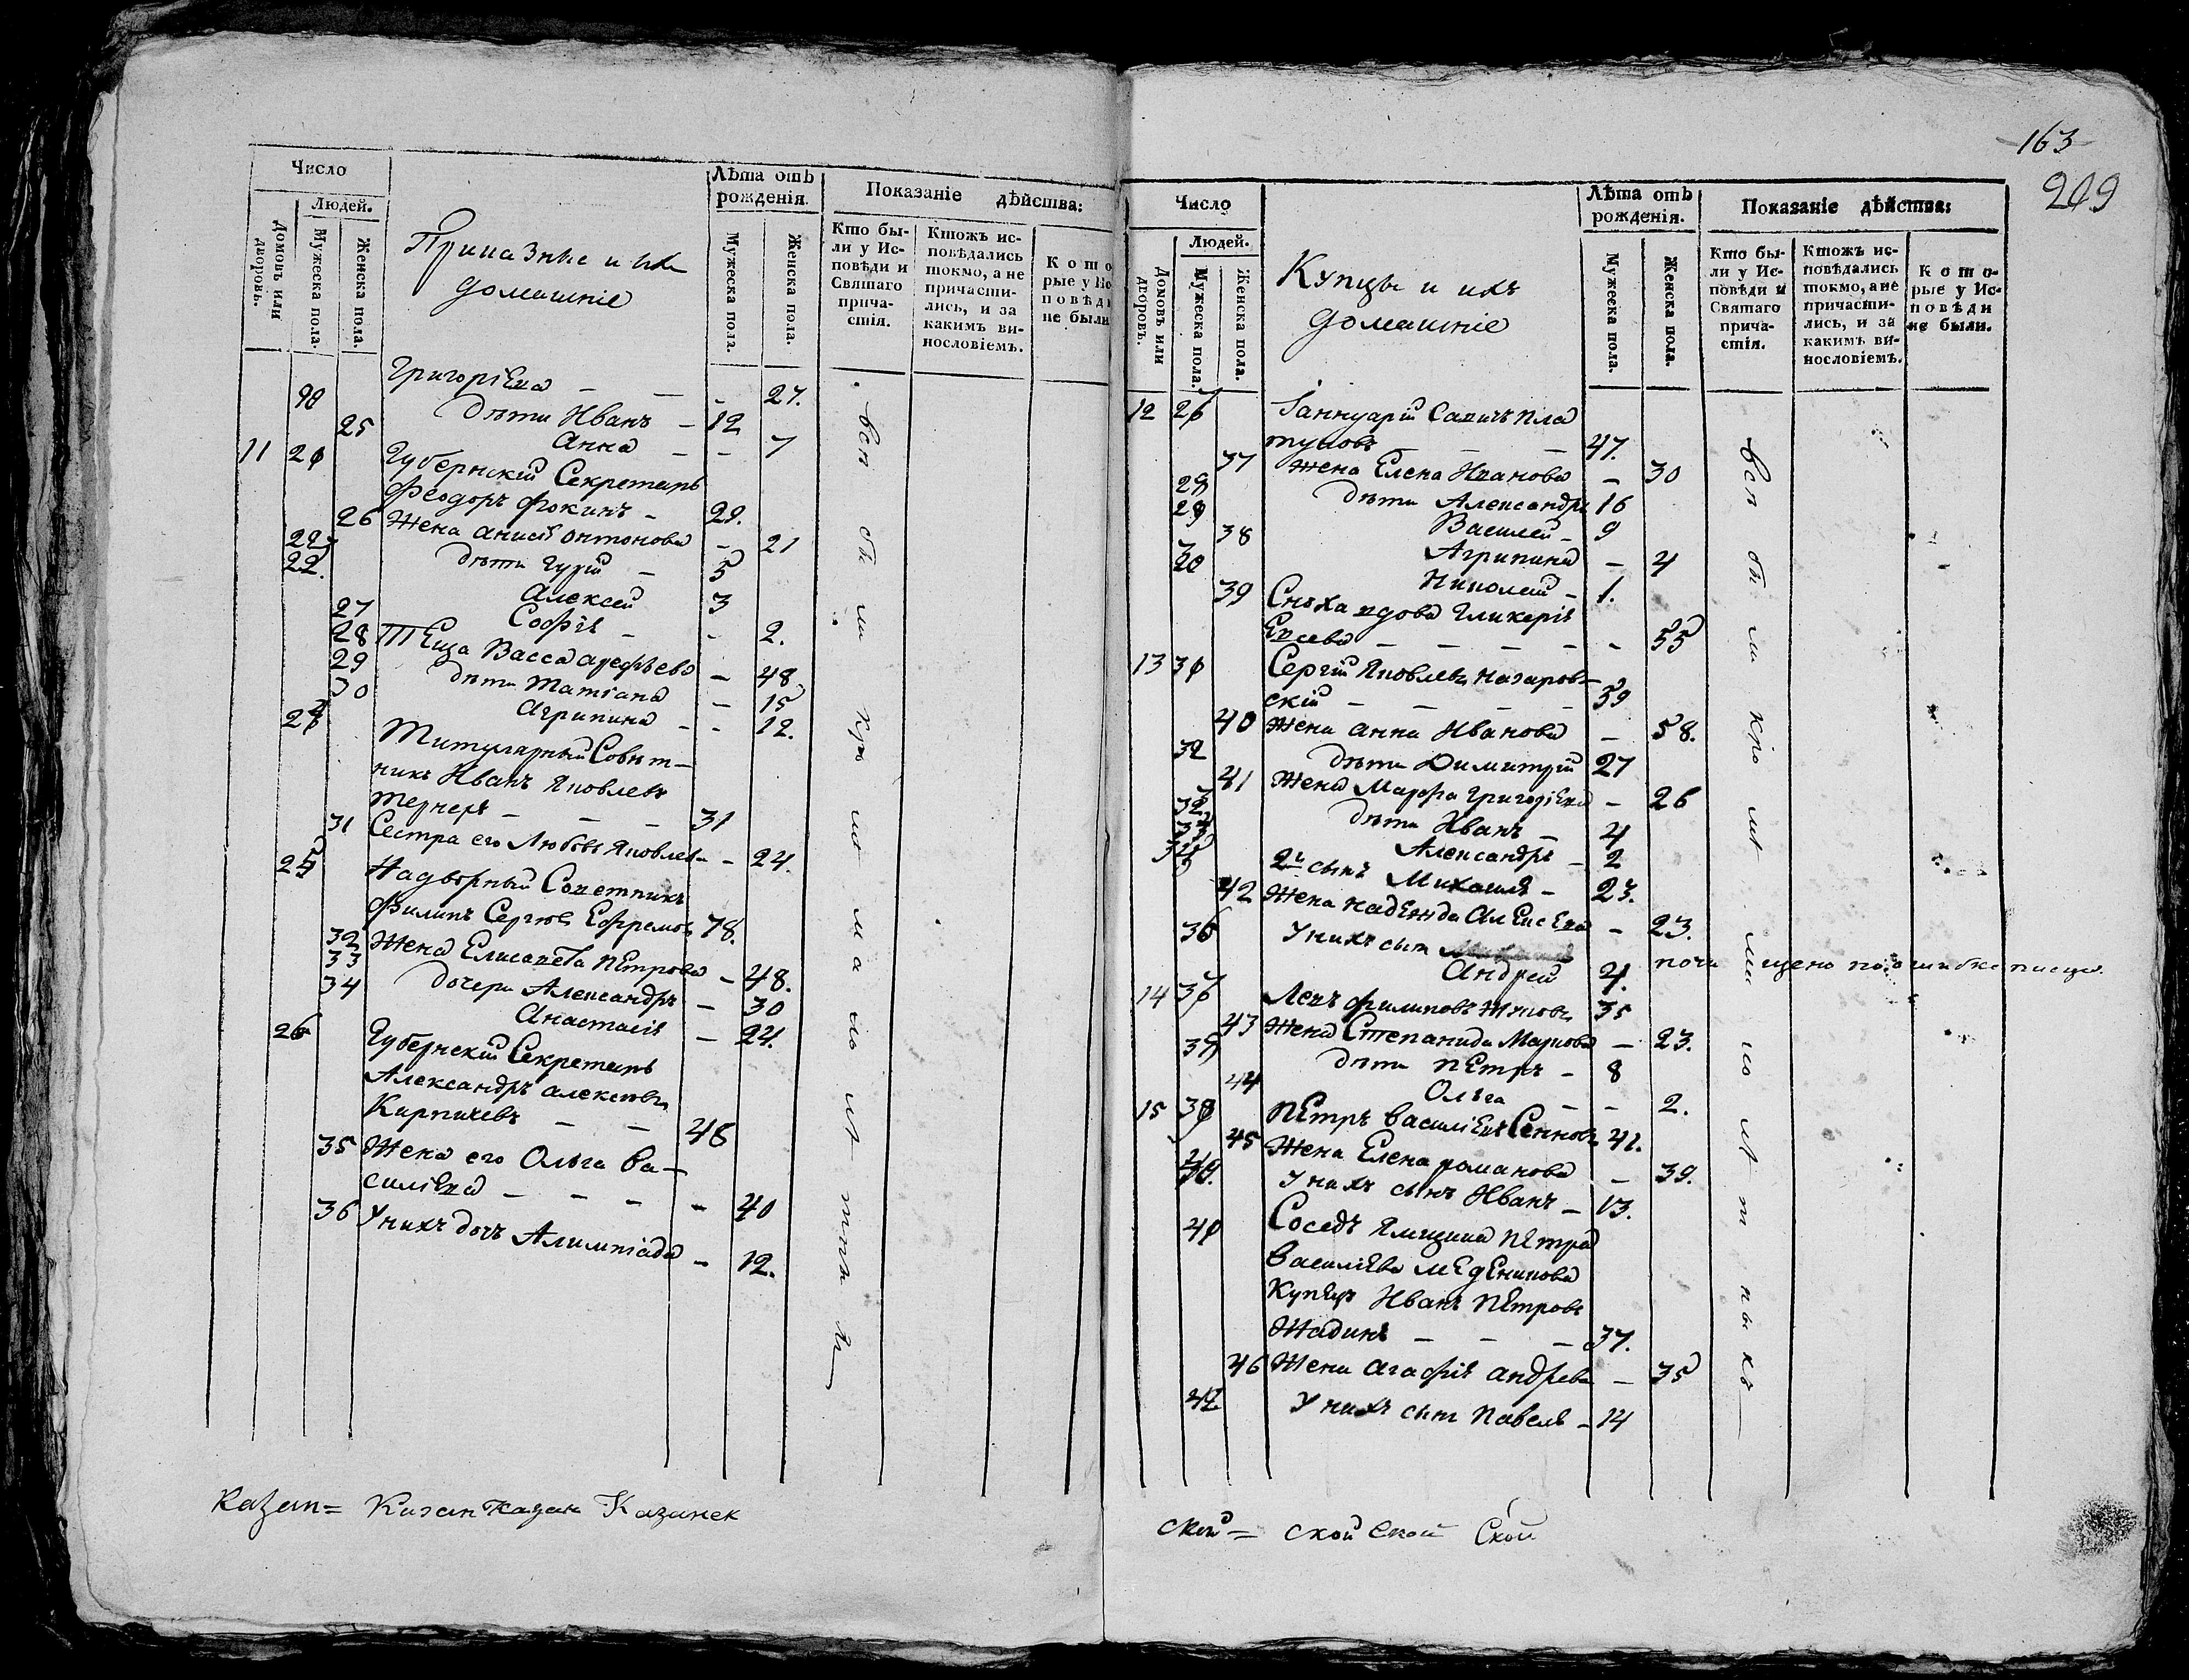 Число
Людей.
Домовъ или дворовъ.
Мужеска пола.
Женска пола.
Приказные и ихъ
домашніе
Лѣта отъ
рожденія.
Мужеска пола.
Женска пола.
Показаніе дѣйства:
Кто бы-
ли у Ис-
повѣди и
Святаго
прича-
стія.
Ктожъ ис-
повѣдались
токмо, а не
причасти-
лись, и за
какимъ ви-
нословіемъ.
Кото
рые у Ис
повѣди
не были
Григоріева — — — 27.
дѣти Иванъ — 12
25 Анна — — 7
11 Губернскій Секретарь
Феодоръ Фокинъ — 29.
26 Жена Анисія Антонова — 21
дѣти Гурій — 5
22. Алексей 3
27 Софія — - 2.
28 Теща Васса Арефьева — 48
29 дѣти Татіана — 15
30 Агрипина — - 12.
Титулярный Совѣт-
никъ Иванъ Яковлевъ
Тернеръ — — — 31
31 Сестра его Любовь Яковлева — 24.
Надворный Советникъ
Филипъ Сергѣевъ Ефремовъ 78.
32 Жена Елисавета Петрова — 48.
33 дочери Александра — 30
34 Анастасія — 24.
26 Губернскій Секретарь
Александръ Алексѣевъ
Кирпичевъ — — 46
35 Жена его Ольга Ва-
силіева — — — - 40
36 У нихъ дочь Алимпіада — 12.
всѣ были
Казан= Казан Казан Казанск
163
209
Число
Людей.
Домовъ или дворовъ.
Мужеска пола.
Женска пола.
Купцы и ихъ
домашніе
Лѣта отъ
рожденія.
Мужеска пола.
Женска пола.
Показаніе дѣйства:
Кто бы-
ли у Ис-
повѣди и
Святаго
прича-
стія.
Ктожъ ис-
повѣдались
токмо, а не
причасти-
лись, и за
какимъ ви-
нословіемъ.
Кото-
рые у Ис-
повѣди
не были.
12 Іаннуарій Савичъ Пла
туновъ — — 47.
37 Жена Елена Иванова — 30
дѣти Александръ 16
Василей — 9
38 Агрипина — 4
Николай — 1.
39 Сноха вдова Гликерія
Евсева — — — - 55
13 Сергій Яковлевъ Назаров-
скій — — — 59
40 Жена Анна Иванова — 58.
32 дѣти Димитрій 27
41 Жена Марфа Григоріева — 26
дѣти Иванъ — 4
Александръ — 2
2й сынъ Михаилъ — 23.
42 Жена Надежда Алексеева — 23.
36 У нихъ сынъ
Андрей 4. по ошибке писца.
14 Левъ Филиповъ 35
43 Жена Степанида Маркова — 23.
дѣти Петръ — 8
44 Ольга — - 2.
15 Петръ Василіевъ Сенновъ 42.
45 Жена Елена Романова — 39.
У нихъ сынъ Иванъ — 13.
Соседъ Ямщика Петра
Василіева Меденикова
Купецъ Иванъ Петровъ
Жадинъ — — — 37.
46 Жена Агафія Андрева — 35
42 У нихъ сынъ Павелъ — 14
всѣ были кро мѣ
ской= ской ской Ской